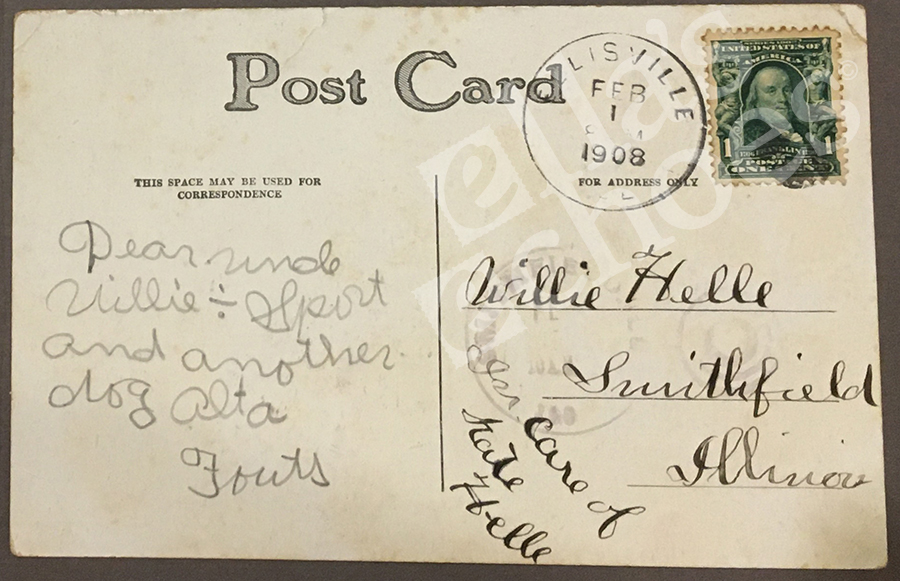 Post Card
LLISVILLE
FEB
1
1908
SERIES 1902
UNITED STATES OF
AMERICA
1 1
FRANKLIN
POSTAGE
ONE CENT
THIS SPACE MAY BE USED FOR
CORRESPONDENCE
FOR ADDRESS ONLY
Dear uncle
Willie ÷ Sport
and another
dog Alta
Fouts
Willie Helle
Smithfield
Illinois
care of
Kate
Helle
ella's
echoes